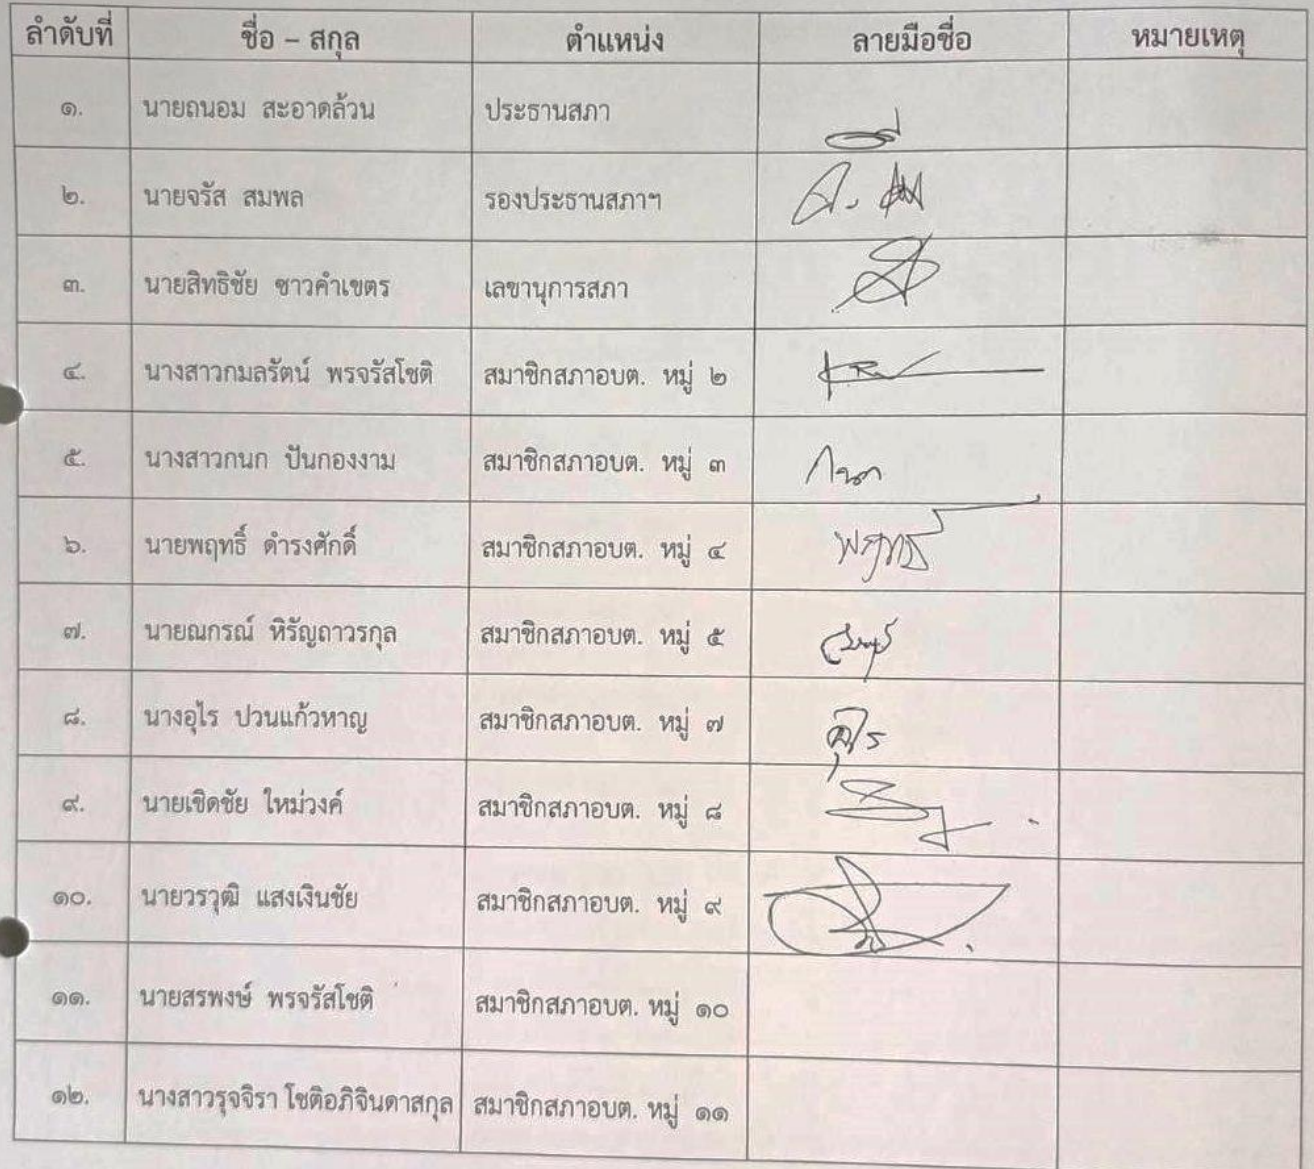 ลำดับที่ ชื่อ – สกุล ตำแหน่ง ลายมือชื่อ หมายเหตุ
๑. นายถนอม สะอาดล้วน ประธานสภา
๒. นายจรัส สมพล รองประธานสภาฯ
๓. นายสิทธิชัย ชาวคำเขตร เลขานุการสภา
๔. นางสาวกมลรัตน์ พรจรัสโชติ สมาชิกสภาอบต. หมู่ ๒
๕. นางสาวกนก ปันกองงาม สมาชิกสภาอบต. หมู่ ๓ กนก
๖. นายพฤทธิ์ ดำรงศักดิ์ สมาชิกสภาอบต. หมู่ ๔ พฤทธิ์
๗. นายณกรณ์ หิรัญถาวรกุล สมาชิกสภาอบต. หมู่ ๕
๘. นางอุไร ปวนแก้วหาญ สมาชิกสภาอบต. หมู่ ๗ อุไร
๙. นายเชิดชัย ใหม่วงค์ สมาชิกสภาอบต. หมู่ ๘
๑๐. นายวรวุฒิ แสงเงินชัย สมาชิกสภาอบต. หมู่ ๙
๑๑. นายสรพงษ์ พรจรัสโชติ สมาชิกสภาอบต. หมู่ ๑๐
๑๒. นางสาวรุจจิรา โชติอภิจินดาสกุล สมาชิกสภาอบต. หมู่ ๑๑